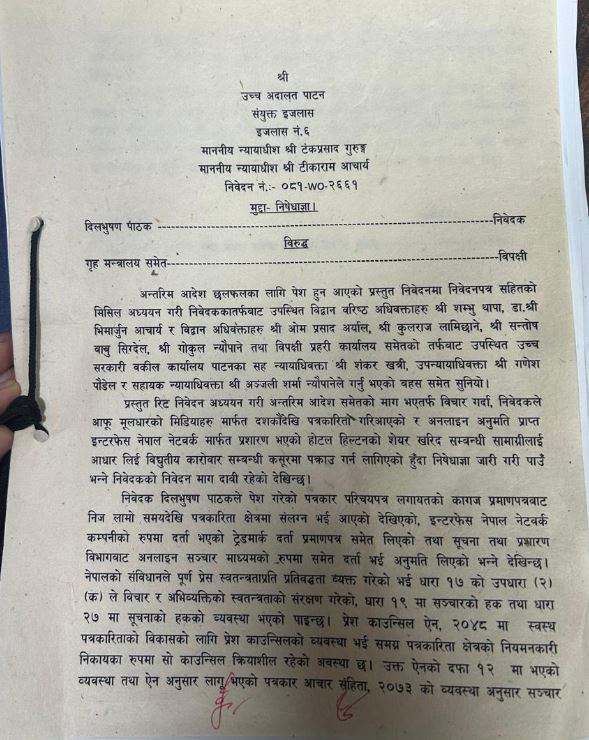 श्री
उच्च अदालत पाटन
संयुक्त इजलास
इजलास नं.६
माननीय न्यायाधीश श्री टंकप्रसाद गुरुङ्ग
माननीय न्यायाधीश श्री टीकाराम आचार्य
निवेदन नं.:- ०८१-WO-२६६१
मुद्दा- निषेधाज्ञा।
दिलभुषण पाठक ------------------------------------------------------------निवेदक
विरुद्ध
गृह मन्त्रालय समेत------------------------------------------------------------विपक्षी
अन्तरिम आदेश छलफलका लागि पेश हुन आएको प्रस्तुत निवेदनमा निवेदनपत्र सहितको
मिसिल अध्ययन गरी निवेदककातर्फबाट उपस्थित विद्वान वरिष्ठ अधिवक्ताहरु श्री शम्भु थापा, डा.श्री
भिमार्जुन आचार्य र विद्वान अधिवक्ताहरु श्री ओम प्रसाद अर्याल, श्री कुलराज लामिछाने, श्री सन्तोष
बाबु सिग्देल, श्री गोकुल न्यौपाने तथा विपक्षी प्रहरी कार्यालय समेतको तर्फबाट उपस्थित उच्च
सरकारी वकील कार्यालय पाटनका सह न्यायाधिवक्ता श्री शंकर खत्री, उपन्यायाधिवक्ता श्री गणेश
पौडेल र सहायक न्यायाधिवक्ता श्री अञ्जली शर्मा न्यौपानेले गर्नु भएको बहस समेत सुनियो।
प्रस्तुत रिट निवेदन अध्ययन गरी अन्तरिम आदेश समेतको माग भएतर्फ विचार गर्दा, निवेदकले
आफू मूलधारको मिडियाहरु मार्फत दशकौंदेखि पत्रकारिता गरिआएको र अनलाइन अनुमति प्राप्त
इन्टरफेस नेपाल नेटवर्क मार्फत प्रशारण भएको होटल हिल्टनको शेयर खरिद सम्बन्धी सामाग्रीलाई
आधार लिई विद्युतीय कारोवार सम्बन्धी कसूरमा पक्राउ गर्न लागिएको हुँदा निषेधाज्ञा जारी गरी पाउँ
भन्ने निवेदकको निवेदन माग दावी रहेको देखिन्छ।
निवेदक दिलभुषण पाठकले पेश गरेको पत्रकार परिचयपत्र लगायतको कागज प्रमाणपत्रबाट
निज लामो समयदेखि पत्रकारिता क्षेत्रमा संलग्न भई आएको देखिएको, इन्टरफेस नेपाल नेटवर्क
कम्पनीको रुपमा दर्ता भएको ट्रेडमार्क दर्ता प्रमाणपत्र समेत लिएको तथा सूचना तथा प्रशारण
विभागबाट अनलाइन सञ्चार माध्यमको रुपमा समेत दर्ता भई अनुमति लिएको भन्ने देखिन्छ।
नेपालको संविधानले पूर्ण प्रेस स्वतन्त्रताप्रति प्रतिबद्धता व्यक्त गरेको भई धारा १७ को उपधारा (२)
(क) ले विचार र अभिव्यक्तिको स्वतन्त्रताको संरक्षण गरेको, धारा १९ मा सञ्चारको हक तथा धारा
२७ मा सूचनाको हकको व्यवस्था भएको पाइन्छ। प्रेश काउन्सिल ऐन, २०४८ मा स्वस्थ
पत्रकारिताको विकासको लागि प्रेश काउन्सिलको व्यवस्था भई समग्र पत्रकारिता क्षेत्रको नियमनकारी
निकायका रुपमा सो काउन्सिल क्रियाशील रहेको अवस्था छ। उक्त ऐनको दफा १२ मा भएको
व्यवस्था तथा ऐन अनुसार लागू भएको पत्रकार आचार संहिता, २०७३ को व्यवस्था अनुसार सञ्चार